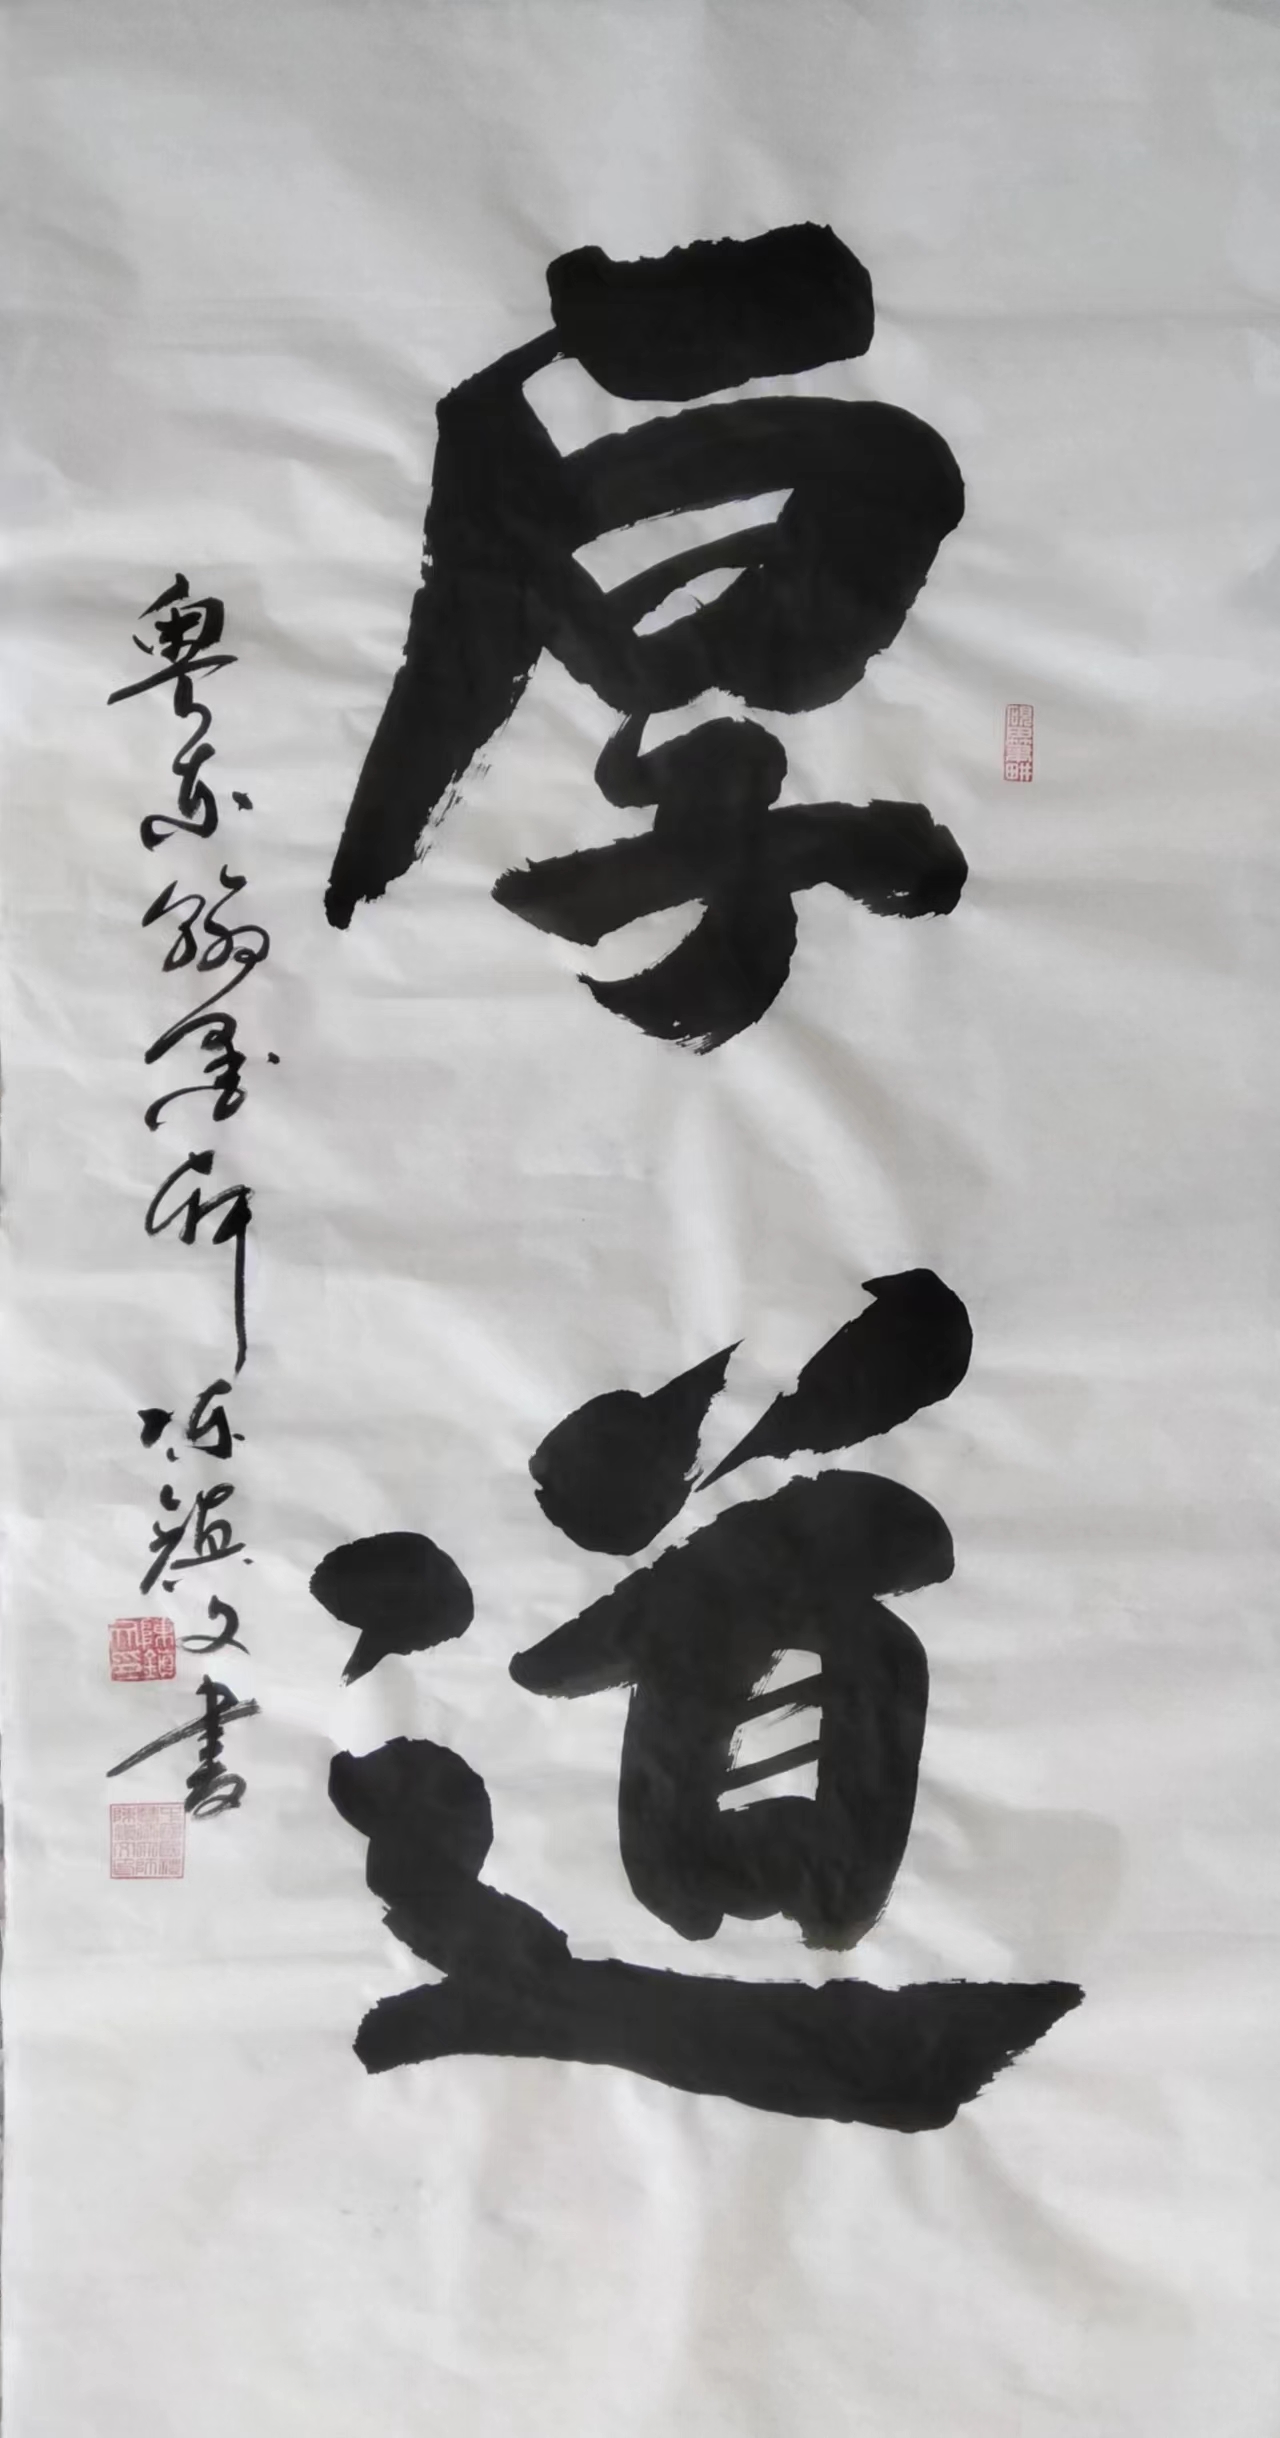 厚道
粤东翰墨轩陈镇文書